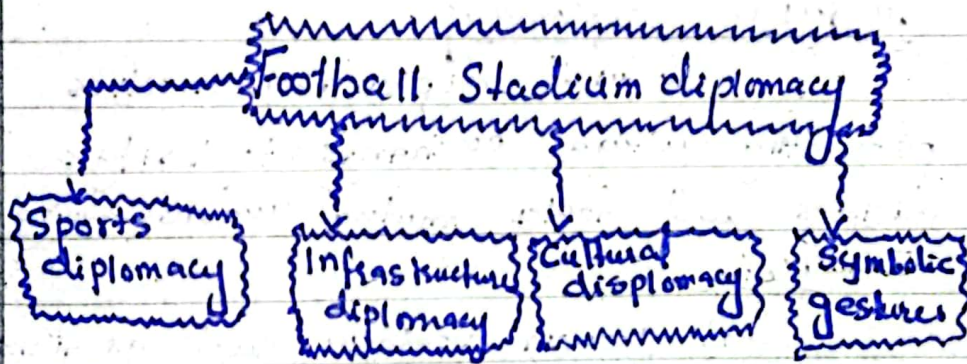 Football Stadium diplomacy
Sports
diplomacy
Infrastructure
diplomacy
Cultural
displomacy
Symbolic
gestures